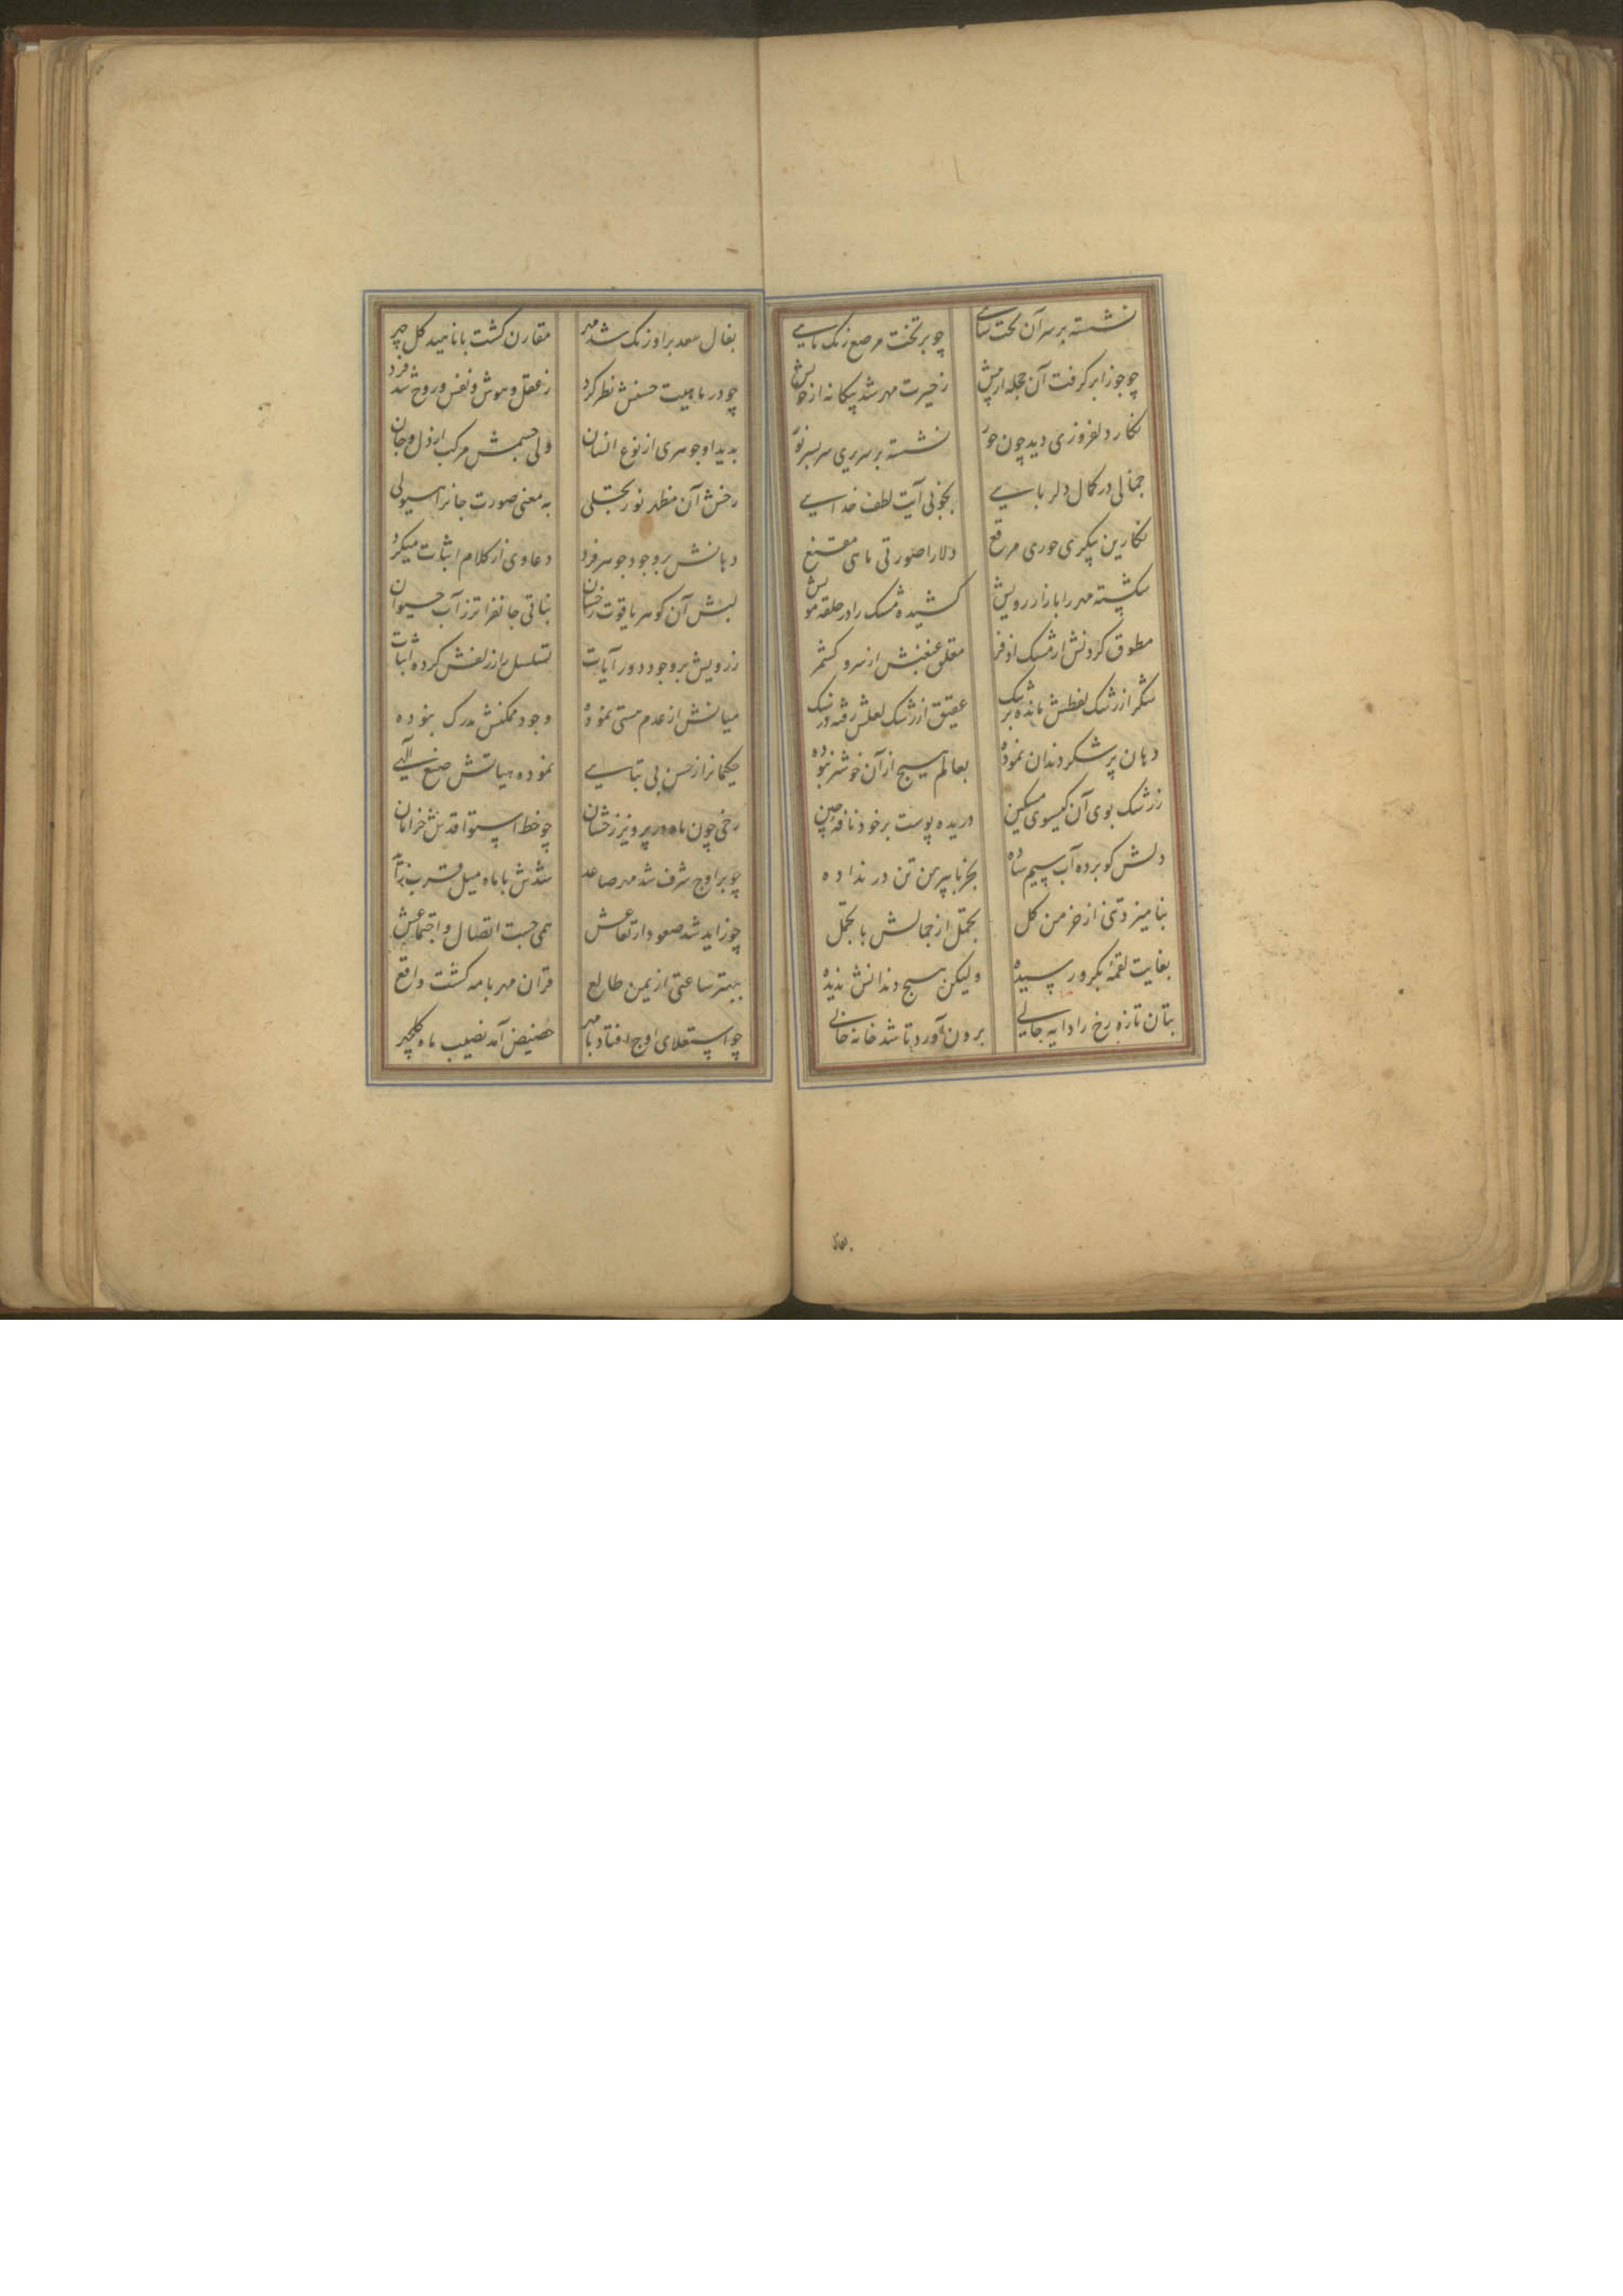 نشسته بر سر آن تخت شاهی چو بر تخت مرصع زنک ماهی
چو جوزا بر کرفت آن حجله از پیش ز حیرت مهر شد بیکانه از خویش
نکار دلفروزی دید چون حور نشسته بر سریری سر بسر نور
جمالی در کمال دلربایی بخوبی آیت لطف خدایی
نکارین پیکری حوری مرقع دلارا صورتی ماهی مقنع
شکسته مهر را بازار رویش کشیده مشک را در حلقه مویش
مطوق کردنش از مشک اذفر معلق غبغبش از سرو کشمر
شکر از رشک لفظش مانده بر تنک عقیق از رشک لعلش رفته در سنک
دهان پر شکر دندان نموده بعالم هیچ از آن خوشتر نبوده
ز رشک بوی آن کیسوی مشکین دریده پوست بر خود نافه چین
دلش کو برده آب سیم ساده بجز با پیرهن تن در نداده
بنامیزد تنی از خرمن کل تجمل از جمالش با تجمل
بغایت لقمهٔ بکرو رسیده ولیکن هیچ دندانش ندیده
بتان تازه رخ را دایه جایی برون آورد تا شد خانه خالی
بفال سعد بر اورنک شد مهر مقارن کشت با ناهید کل چهر
چو در ماهیت حسنش نظر کرد ز عقل و هوش و نفس و روح شد فرد
بدید او جوهری از نوع انسان ولی جسمش مرکب از دل و جان
رخش آن مظهر نور تجلی به معنی صورت جانرا هیولی
دهانش بر وجود جوهر فرد دعاوی از کلام اثبات میکرد
لبش آن کوهر یاقوت رخشان بناتی جانفزاتر ز آب حیوان
ز رویش بر وجود دور آیات تسلسل را ز زلفش کرده اثبات
میانش از عدم هستی نموده وجود ممکنش مدرک نبوده
حکیمانرا ز حسن بی تباهی نموده هیاتش صنع آلهی
رخی چون ماه در پرویز رخشان چو خط استوا قدش خرامان
چو بر اوج شرف شد مهر صاعد شدش با ماه میل قرب زاید
چو زاید شد صعود ارتفاعش همی جست اتصال و اجتماعش
بهتر ساعتی از یمن طالع قران مهر با مه کشت واقع
چو استعلای اوج افتاد با مهر حضیض آمد نصیب ماه کلچهر
بفال